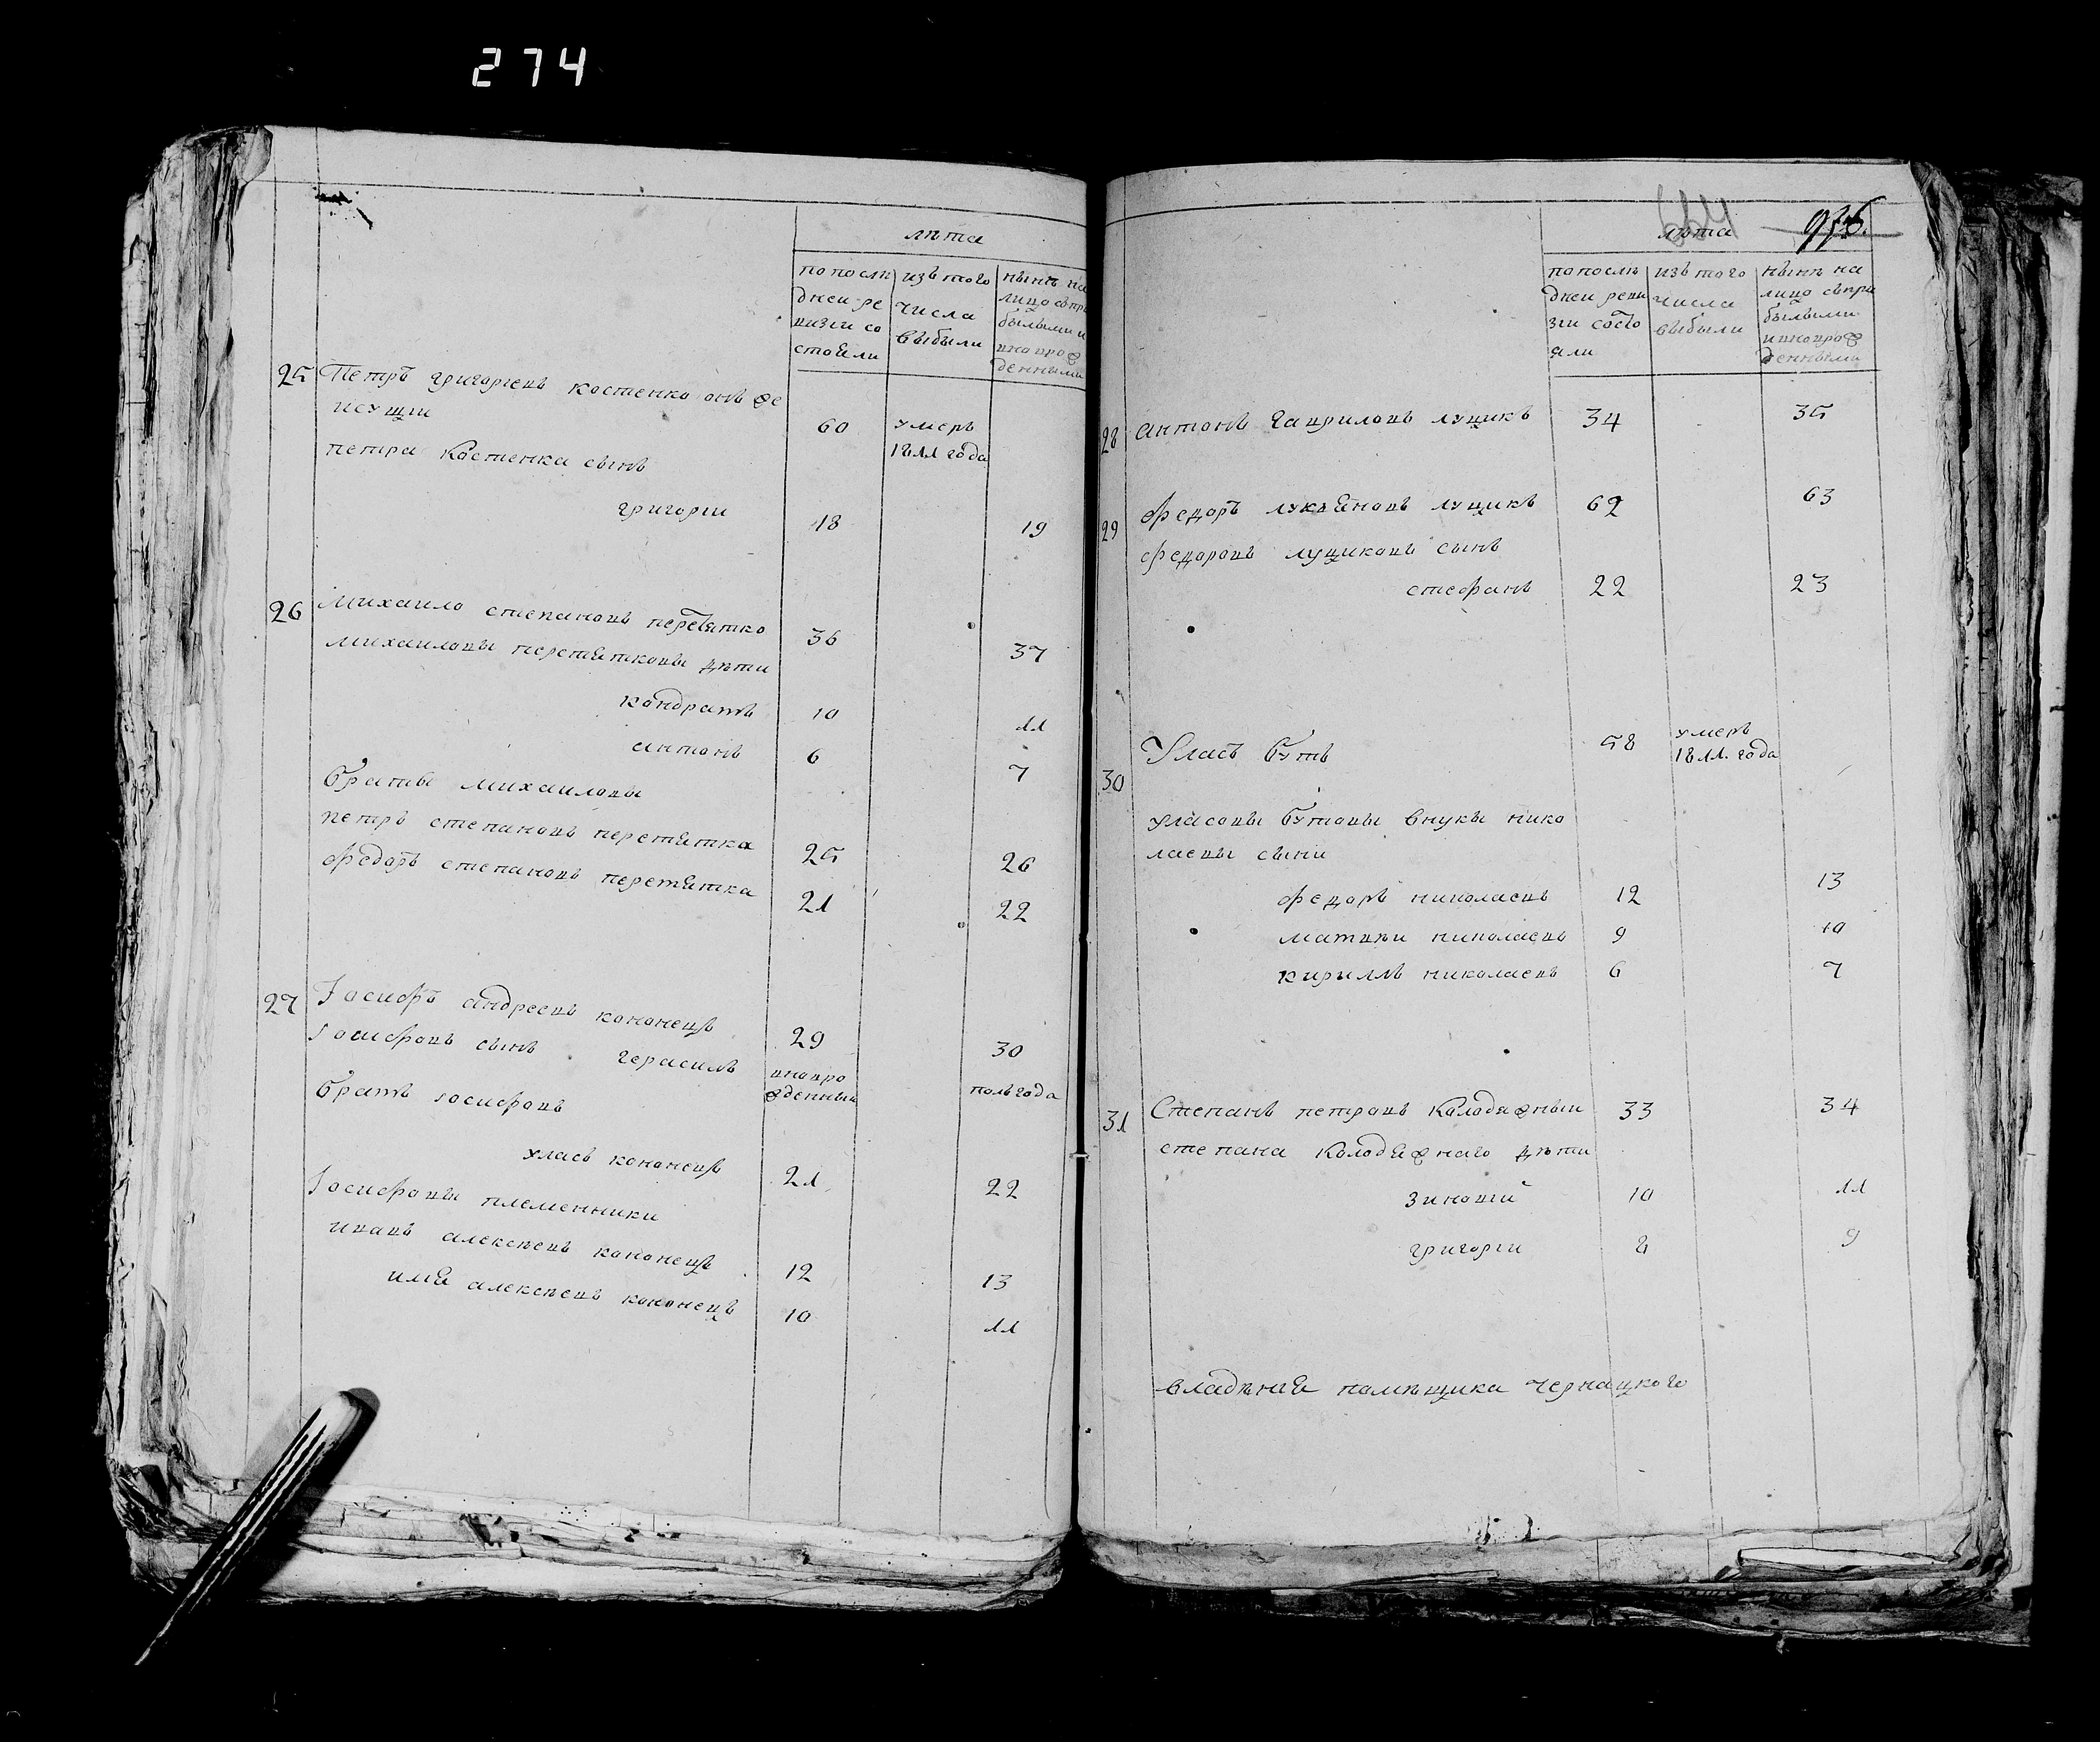 274
лѣта
по посли изъ того нынѣ на
дней ре числа лицо съпри
визги со выбыли былыми и
стояли вновро ж
денными
25 Петръ григориевъ костенко онъ же
исущий 60 умеръ
1811 года
петра костенка сынъ
григории 18 19
26 Михаило степановъ перетятко 36 37
михаиловы перетятковы дѣти
кондратъ 10 11
антонъ 6 7
братья михаиловы
петръ степановъ перетятка 25 26
федоръ степановъ перетятка 21 22
27 Иосифъ андреевъ кононецъ 29 30
иосифовъ сынъ герасимъ вновро польгода
жденный
братъ иосифовъ
уласъ кононецъ 21 22
Иосифовы племенники
иванъ алексѣевъ кононецъ 12 13
илья алексѣевъ кононецъ 10 11
664 936.
лѣта
по послѣ изъ того нынѣ на
дней реви числа лицо съпри
зги состо выбыли былыми
яли и вновро ж
денными
28 антонъ гавриловъ лущикъ 34 35
29 федоръ лукьяновъ лущикъ 62 63
федоровъ лущиковъ сынъ
стефанъ 22 23
30 Уласъ бутъ 58 умеръ
1811. года
уласовы бутовы внуки нико
лаевы сыни
федоръ николаевъ 12 13
матвѣй николаевъ 9 10
кириллъ николаевъ 6 7
31 Степанъ петровъ колодяжный 33 34
степана колодяжнаго дѣти
зиновий 10 11
григории 8 9
владѣния помѣщика чернацкого